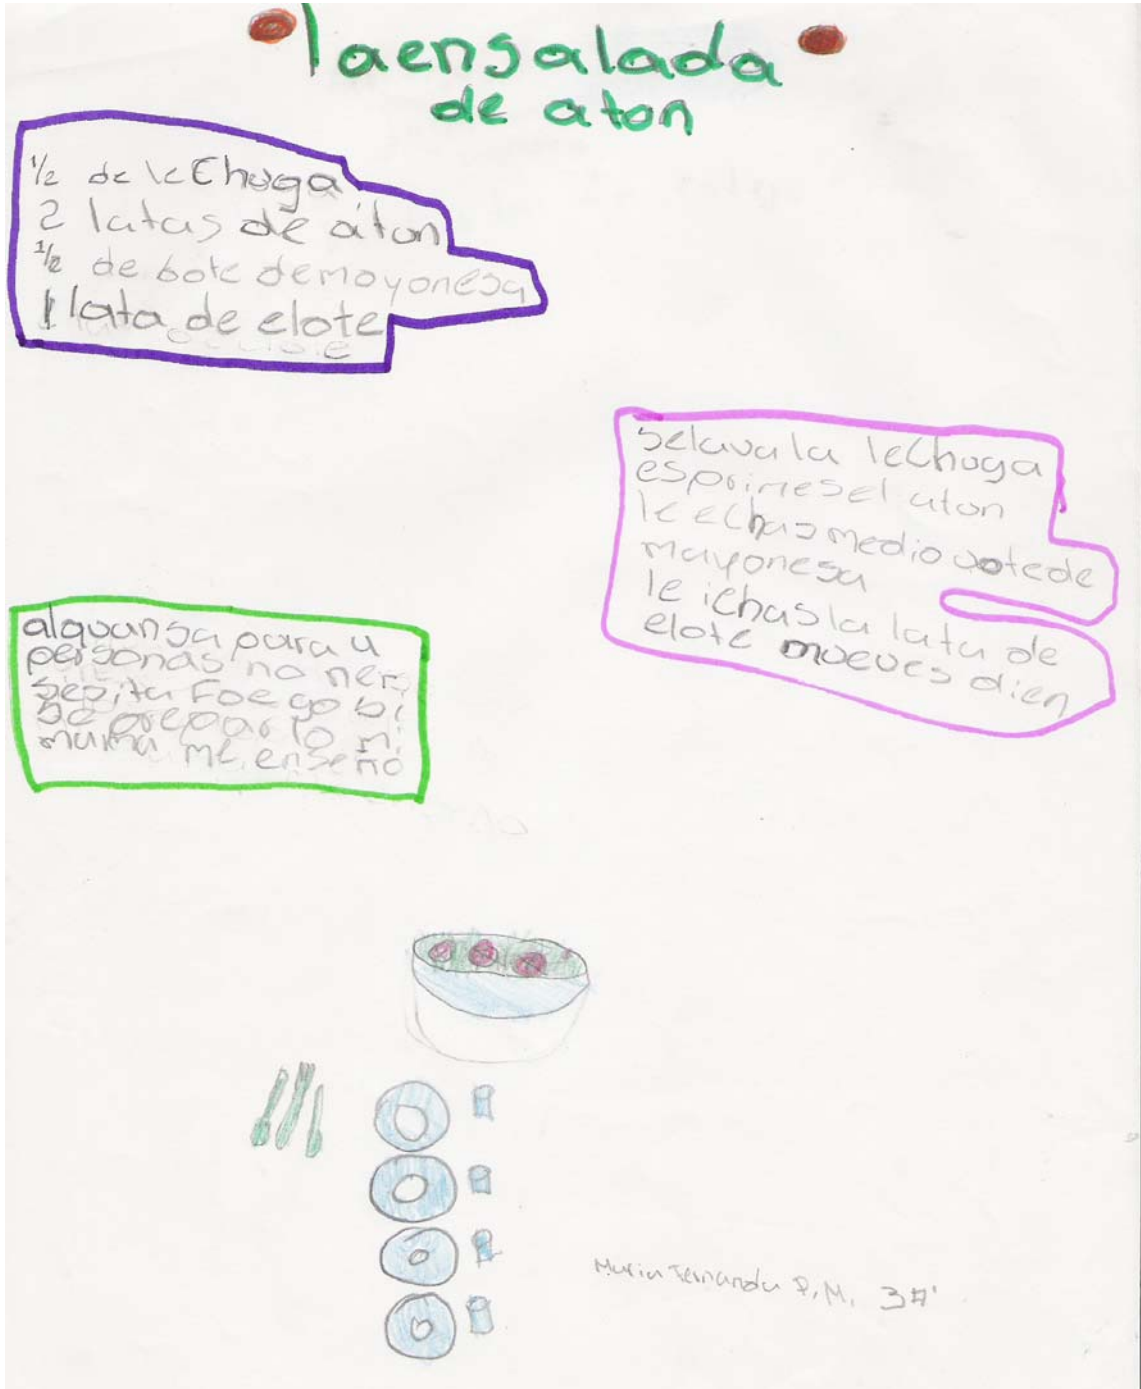 laensalada
de aton
1/2 de leChuga
2 latas de aton
1/2 de bote demoyonesa
1 lata de elote
selava la leChuga
esprimesel aton
le echas medio votede
mayonesa
le ichas la lata de
elote mueves dien
alquansa para 4
personas no ner
sesita Foego si
se preparlo mi
mama me enseño
Maria Fernanda P.M. 3